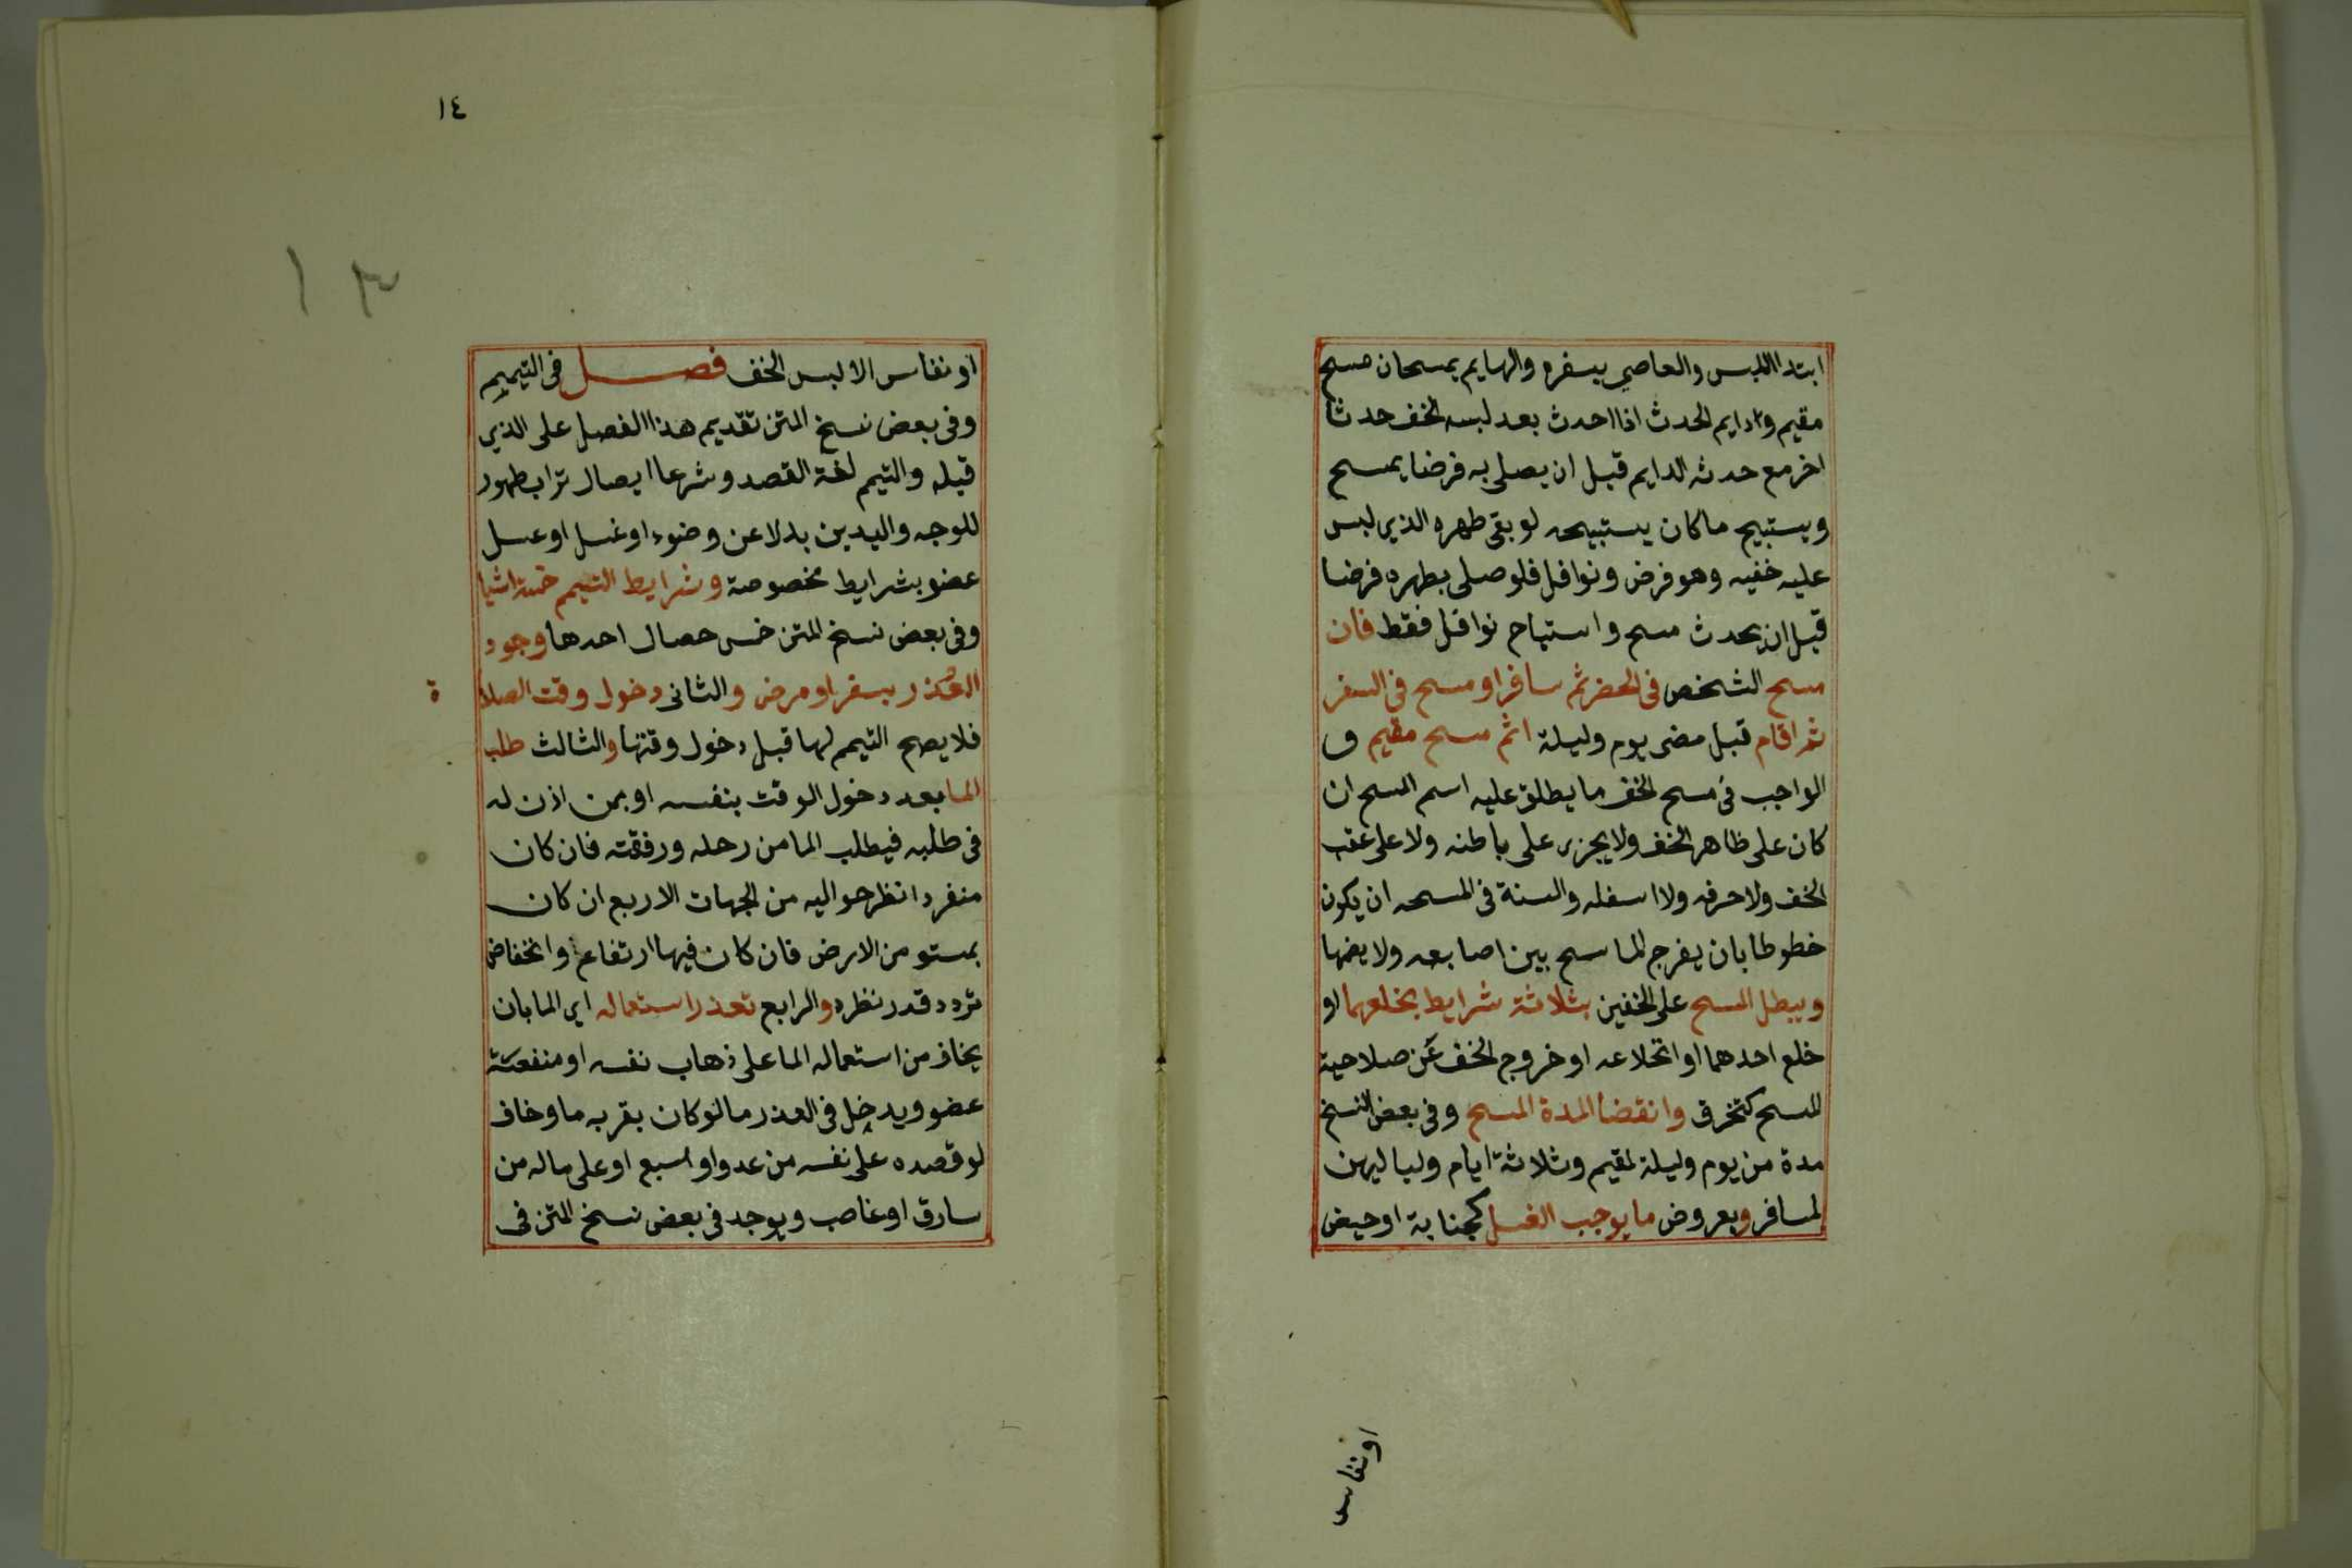 ابتدا اللبس والعاصي بسفره والهايم يمسحان مسح
مقيم ودايم الحدث اذا احدث بعد لبسه الخف حدثا
اخر مع حدثه الدايم قبل ان يصلي به فرضا يمسح
ويستبيح ما كان يستبيحه لو بقى طهره الذي لبس
عليه خفيه وهو فرض ونوافل فلو صلى بطهره فرضا
قبل ان يحدث مسح واستباح نوافل فقط فان
مسح الشخص فى الحضر ثم سافر او مسح فى السفر
ثم اقام قبل مضى يوم وليلة اتم مسح مقيم و
الواجب فى مسح الخف ما يطلق عليه اسم المسح ان
كان على ظاهر الخف ولا يجزي على باطنه ولا على عقب
الخف ولا حرفه ولا اسفله والسنة فى المسحه ان يكون
خطوطا بان يفرج الماسح بين اصابعه ولا يضمها
ويبطل المسح على الخفين بثلاثة شرايط بخلعهما او
خلع احدهما او انخلاعه او خروج الخف عن صلاحية
المسح كتخرق وانقضا المدة المسح وفى بعض النسخ
مدة من يوم وليلة لمقيم وثلاثة ايام ولياليهن
لمسافر وبعروض ما يوجب الغسل كجنابة او حيض
او نفاس
١٤
١٣
او نفاس الابس الخف فصل فى التيمم
وفى بعض نسخ المتن تقديم هذا الفصل على الذي
قبله والتيمم لغة القصد وشرعا ايصال تراب طهور
للوجه واليدين بدلا عن وضوء او غسل او غسل
عضو بشرايط مخصوصة وشرايط التيمم خمسة اشيا
وفى بعض نسخ المتن خمس خصال احدها وجود
العذر بسفر او مرض والثانى دخول وقت الصلاة
فلا يصح التيمم لها قبل دخول وقتها والثالث طلب
الما بعد دخول الوقت بنفسه او بمن اذن له
فى طلبه فيطلب الما من رحله ورفقته فان كان
منفردا نظر حواليه من الجهات الاربع ان كان
بمستو من الارض فان كان فيها ارتفاع وانخفاض
تردد قدر نظره والرابع تعذر استعماله اي الما بان
يخاف من استعماله الما على ذهاب نفسه او منفعة
عضو ويدخل فى العذر ما لو كان بقربه ما وخاف
لو قصده على نفسه من عدو او سبع او على ماله من
سارق او غاصب ويوجد فى بعض نسخ المتن فى